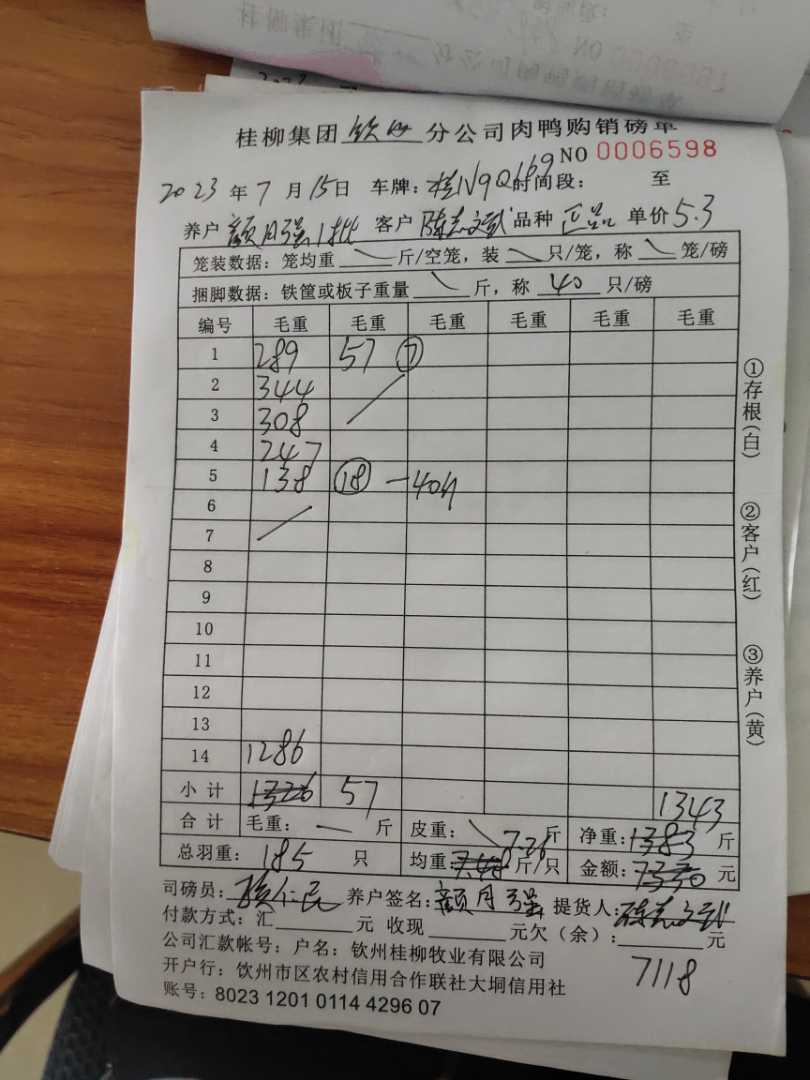 桂柳集团 钦州 分公司肉鸭购销磅单
NO 0006598
2023 年 7 月 15 日 车牌：桂N9Q169 时间段： 至
养户 颜月强1批 客户 陈志文武 品种 正品 单价 5.3
笼装数据：笼均重 斤/空笼，装 只/笼，称 笼/磅
捆脚数据：铁筐或板子重量 斤，称 40 只/磅
编号 毛重 毛重 毛重 毛重 毛重 毛重
1 289 57 ⑦
2 344
3 308
4 247
5 138 ⑱ -40斤
6
7
8
9
10
11
12
13
14 1286
小计 1326 57 1343
合计 毛重： 斤 皮重： 斤 净重：1383 斤
总羽重：185 只 均重 7.48 7.26 斤/只 金额：7330 元
司磅员： 仁民 养户签名：颜月强 提货人：陈志文武
付款方式：汇 元 收现 元欠（余）： 元
7118
公司汇款帐号：户名：钦州桂柳牧业有限公司
开户行：钦州市区农村信用合作联社大垌信用社
账号：8023 1201 0114 4296 07
①存根（白）
②客户（红）
③养户（黄）